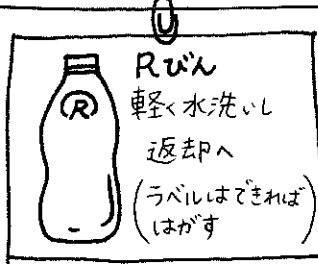 U
R
Rびん
軽く水洗いし
返却へ
(ラベルはできれば
はがす)